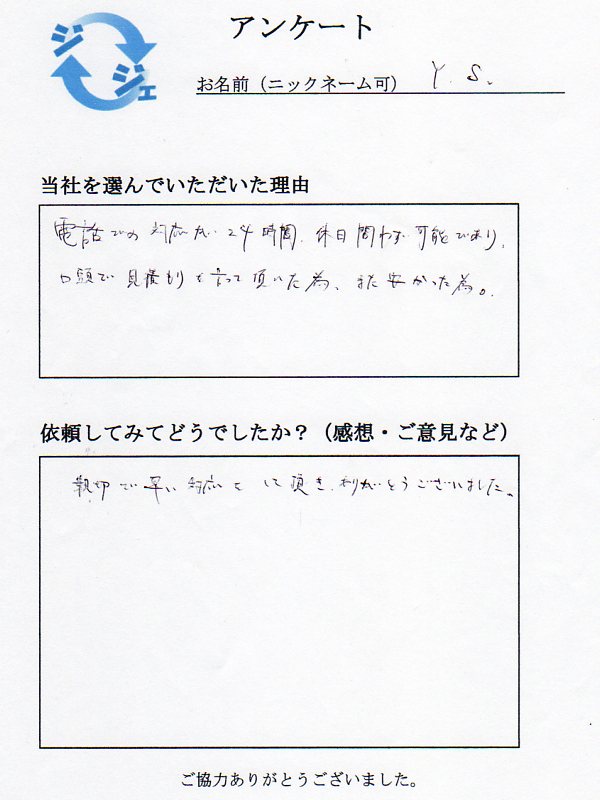 アンケート
ジ
ジェ
お名前（ニックネーム可） Y. S.
当社を選んでいただいた理由
電話での対応が24時間、休日問わず可能であり、
口頭で見積もりを言って頂いた為、また安かった為。
依頼してみてどうでしたか？（感想・ご意見など）
親切で早い対応をして頂き、ありがとうございました。
ご協力ありがとうございました。